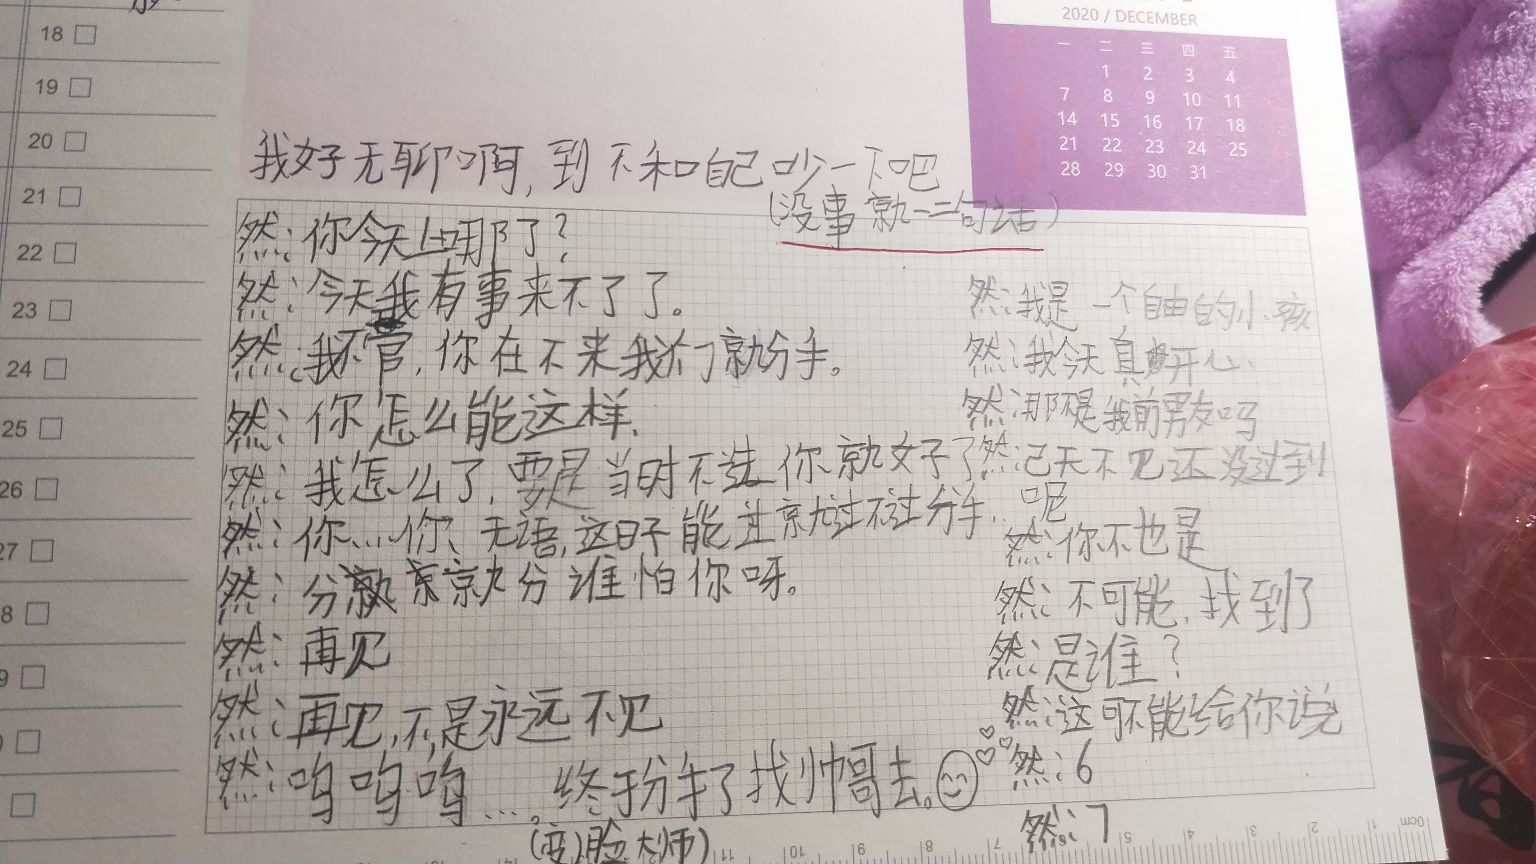 18
19
20
21
22
23
24
25
26
27
8
9
2020 / DECEMBER
一 二 三 四 五
1 2 3 4
7 8 9 10 11
14 15 16 17 18
21 22 23 24 25
28 29 30 31
我好无聊啊,到不和自己吵一下吧
(没事就一二句话)
然:你今天上哪了?
然:今天我有事来不了了。
然:我不管,你在不来我们就分手。
然:你怎么能这样.
然:我怎么了,要是当时不选你就好了
然:你...你、无语,这日子能过就过不过分手.
然:分就就分谁怕你呀。
然:再见
然:再见,不,是永远不见
然:呜呜呜....终于分手了找帅哥去。
(变脸大师)
然:我是一个自由的小孩
然:我今天真开心、
然:那不是我前男友吗
然:己天不见还没过到
呢
然:你不也是
然:不可能,找到了
然:是谁?
然:这可不能给你说
然:6
然:7
11 10 9 8 7 5 4 3 2 1 0cm